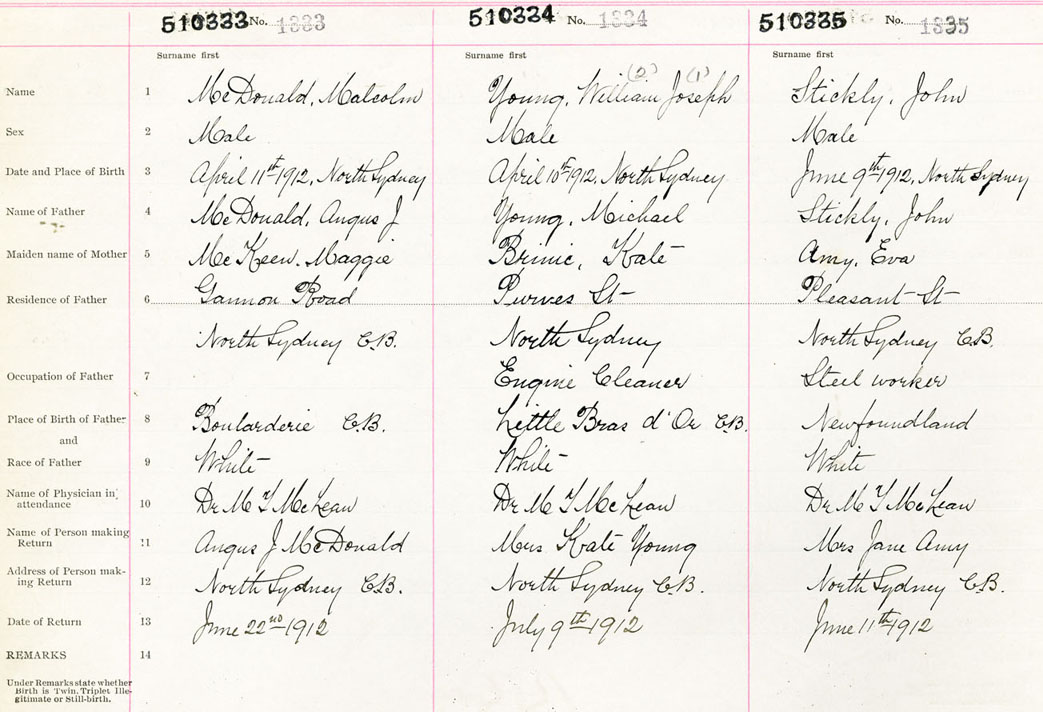 510333 No. 1333 510334 No. 1334 510335 No. 1335
Surname first Surname first Surname first
(2) (1)
Name 1 McDonald, Malcolm Young, William Joseph Stickly, John
Sex 2 Male Male Male
Date and Place of Birth 3 April 11th 1912, North Sydney April 10th 1912, North Sydney June 9th 1912, North Sydney
Name of Father 4 McDonald, Angus J Young, Michael Stickly, John
Maiden name of Mother 5 McKeen. Maggie Kate Amy, Eva
Residence of Father 6 Gannon Road Purves St Pleasant St
North Sydney C.B. North Sydney North Sydney C.B.
Occupation of Father 7 Engine Cleaner Steel worker
Place of Birth of Father 8 Boularderie C.B. Little Bras d'Or C.B. Newfoundland
and
Race of Father 9 White White White
Name of Physician in
attendance 10 Dr M T McLean Dr M T McLean Dr M T McLean
Name of Person making
Return 11 Angus J McDonald Mrs Kate Young Mrs Jane Amy
Address of Person mak-
ing Return 12 North Sydney C.B. North Sydney C.B. North Sydney C.B.
Date of Return 13 June 22nd 1912 July 9th 1912 June 11th 1912
REMARKS 14
Under Remarks state whether
Birth is Twin, Triplet Ille-
gitimate or Still-birth.